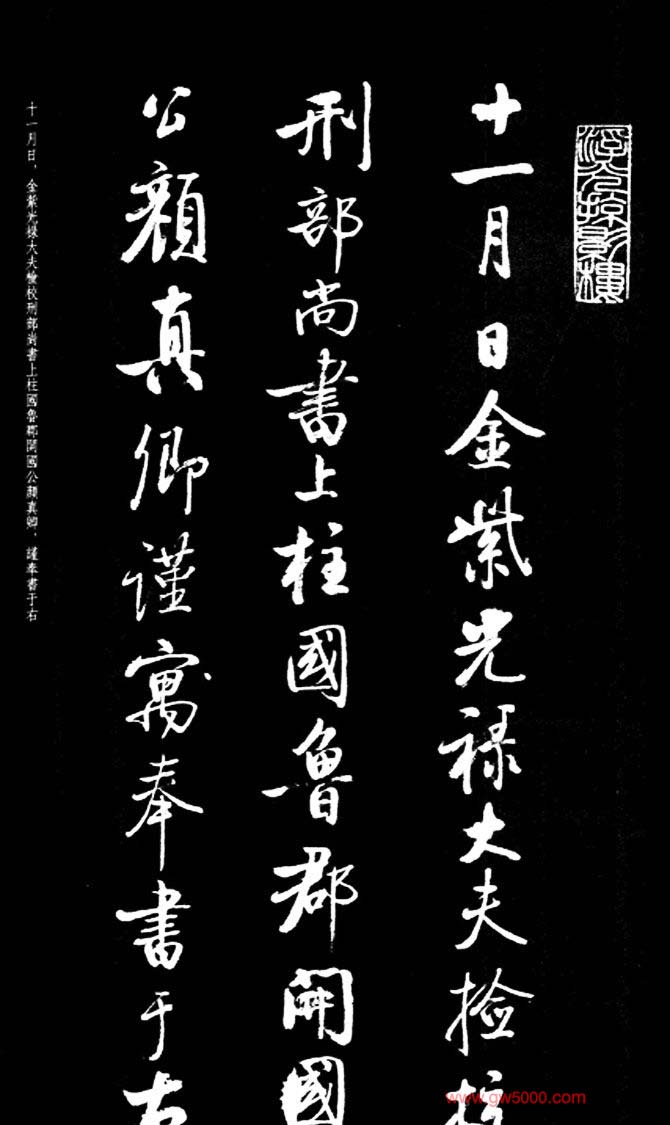 十一月日金紫光禄大夫捡校
刑部尚書上柱國魯郡開國
公顏真卿謹寓奉書于右
十一月日、金紫光祿大夫檢校刑部尚書上柱國魯郡開國公顏真卿、謹奉書于右
www.gw5000.com